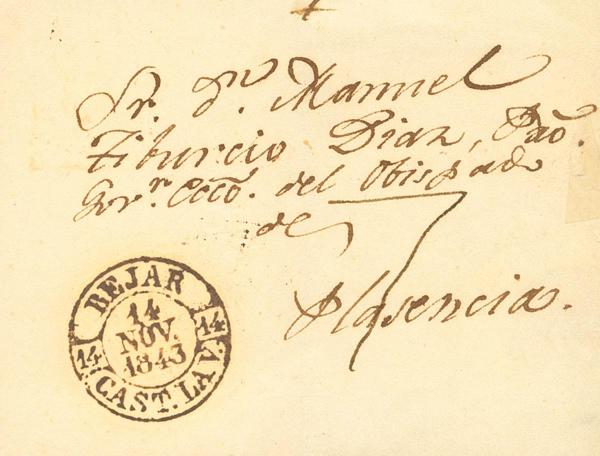 Sr. Dn. Manuel
Tiburcio Diaz, Pão.
Govrn. Ecco. del Obispado
de
Plasencia.
BEJAR
14
NOV.
1843
14
14
CAST. LA V.